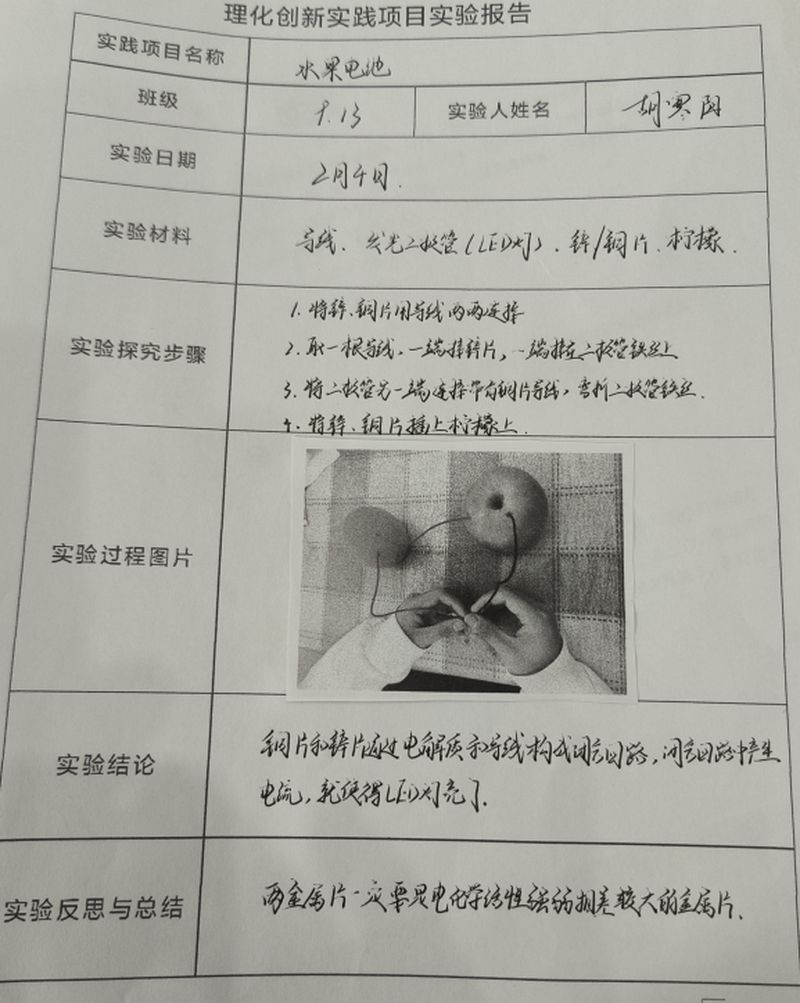 理化创新实践项目实验报告
实践项目名称 水果电池
班级 9.13 实验人姓名 胡寒
实验日期 2月4日.
实验材料 导线、发光二极管(LED灯)、锌/铜片、柠檬.
实验探究步骤
1. 将锌、铜片用导线两两连接
2. 取一根导线,一端接锌片,一端接在二极管铁丝上
3. 将二极管另一端连接带有铜片导线,弯折二极管铁丝.
4. 将锌、铜片插上柠檬上.
实验过程图片
实验结论
铜片和锌片通过电解质和导线构成闭合回路,闭合回路中产生
电流,就使得LED灯亮了.
实验反思与总结 两金属片一定要是电化学活性强弱相差较大的金属片.